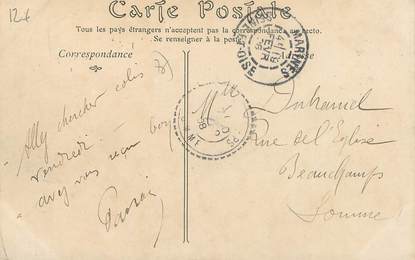 124
Carte Postale
Tous les pays étrangers n'acceptent pas la correspondance au recto.
Se renseigner à la poste
Correspondance
MARINES
SEINE-ET-OISE
FEVR
Ally chercher colis
vendredi
avez vous reçu
M Duhamel
Rue de l'Eglise
Beauchamps
Somme